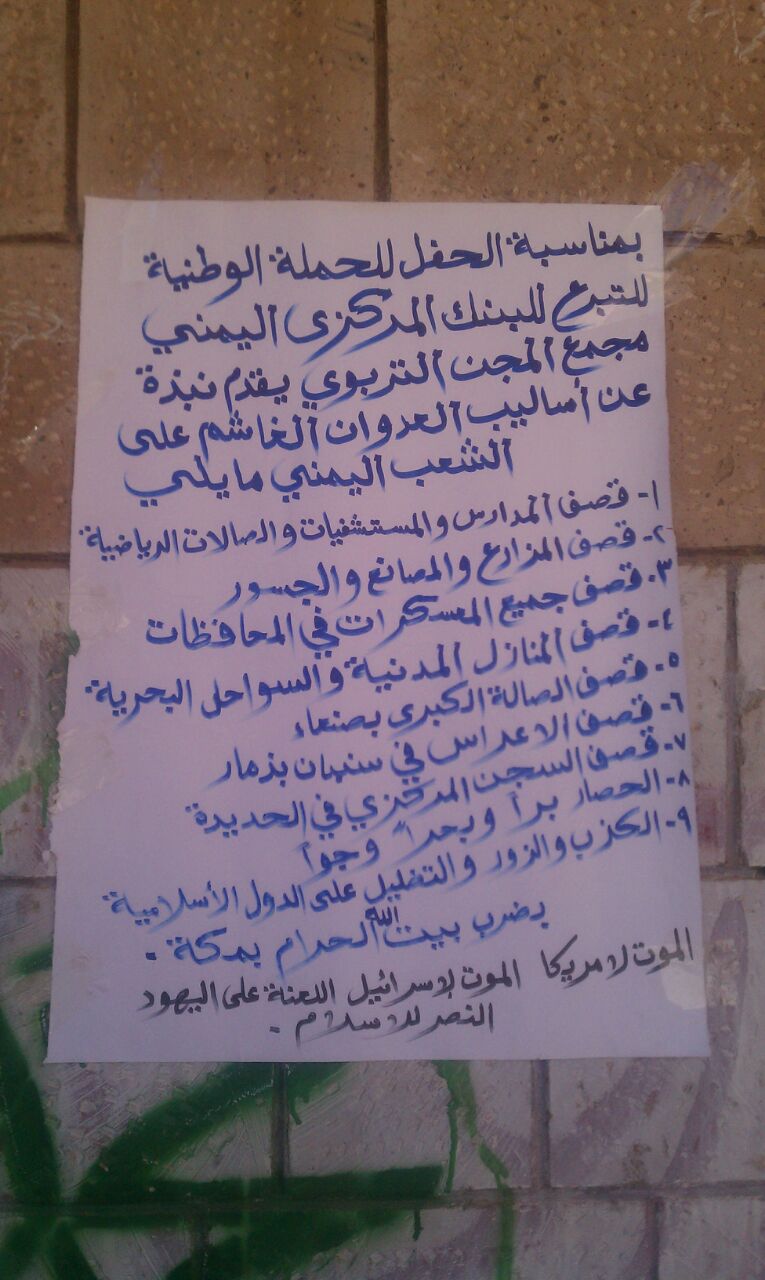 بمناسبة الحفل للحملة الوطنية
للتبرع للبنك المركزى اليمني
مجمع المجن التربوي يقدم نبذة
عن أساليب العدوان الغاشم على
الشعب اليمني مايلي
١- قصف المدارس والمستشفيات والصالات الرياضية
٢- قصف المزارع والمصانع والجسور
٣- قصف جميع المعسكرات في المحافظات
٤- قصف المنازل المدنية والسواحل البحرية
٥- قصف الصالة الكبرى بصنعاء
٦- قصف الاعراس في سنبان بذمار
٧- قصف السجن المركزي في الحديدة
٨- الحصار براً وبحراً وجواً
٩- الكذب والزور والتضليل على الدول الأسلامية
بضرب بيت الله الحرام بمكة .
الموت لامريكا الموت لإسرائيل اللعنة على اليهود
النصر للاسلام .